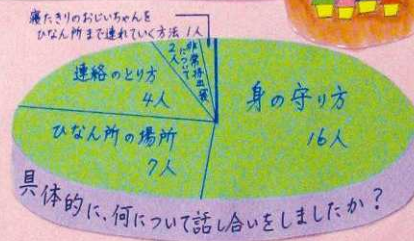 寝たきりのおじいちゃんを
ひなん所まで連れていく方法 1人
非常持出袋
について
2人
連絡のとり方
4人
身の守り方
16人
ひなん所の場所
7人
具体的に、何について話し合いをしましたか?